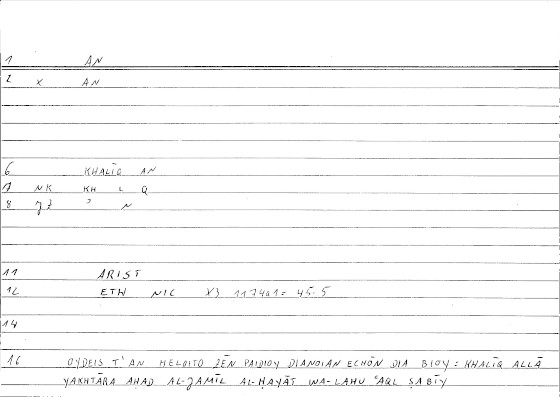 1 AN
2 X AN
6 KHALĪQ AN
7 NK KH L Q
8 ʾ N
11 ARIST
12 ETH NIC X3 1174a1 = 45.5
14
16 OYDEIS T' AN HELOITO ZĒN PAIDIOY DIANOIAN ECHŌN DIA BIOY = KHALĪQ ALLĀ
YAKHTĀRA AḤAD AL-JAMĪL AL-ḤAYĀT WA-LAHU ʿAQL ṢABĪY